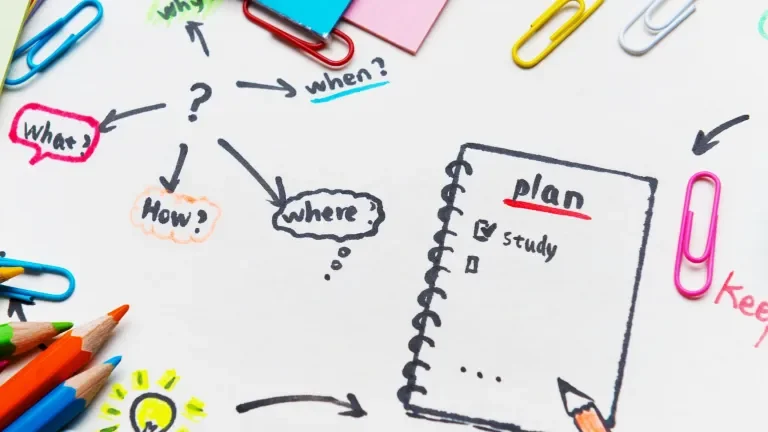 why
when?
?
What?
How?
where?
plan
study
...
Keep